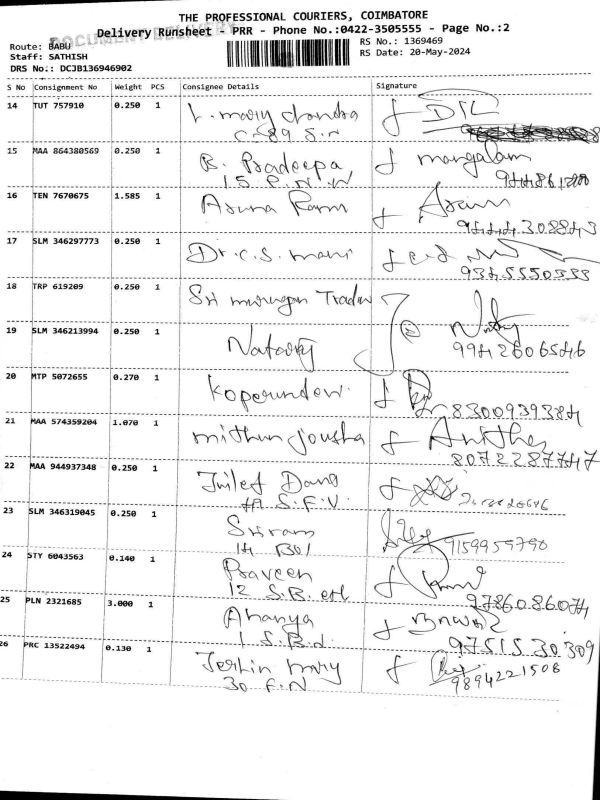 THE PROFESSIONAL COURIERS, COIMBATORE
DOCUMENT DELIVERY
Delivery Runsheet - PRR - Phone No.:0422-3505555 - Page No.:2
Route: BABU
RS No.: 1369469
Staff: SATHISH
RS Date: 20-May-2024
DRS No.: DCJB136946902
S No Consignment No Weight PCS Consignee Details Signature
14 TUT 757910 0.250 1 L. mary chandra
15 MAA 864380569 0.250 1 R. Pradeepa mangalam
15 P.N.W
16 TEN 7670675 1.585 1 Aruna Ram Aram
17 SLM 346297773 0.250 1 Dr.C.S. mani
9345550333
18 TRP 619209 0.250 1 Sri murugan Trader
19 SLM 346213994 0.250 1 Nataraj
9942606546
20 MTP 5072655 0.270 1 Koperundevi
8300939384
21 MAA 574359204 1.070 1 mithun Anitha
8072287747
22 MAA 944937348 0.250 1
S.F.V.
23 SLM 346319045 0.250 1 Sriram 9159959790
14
24 STY 6043563 0.140 1 Praveen
12 S.B. 9786086074
25 PLN 2321685 3.000 1 Ananya
1 S.B. 9751530309
26 PRC 13522494 0.130 1 Jerlin mary
30 F.N 9894221506